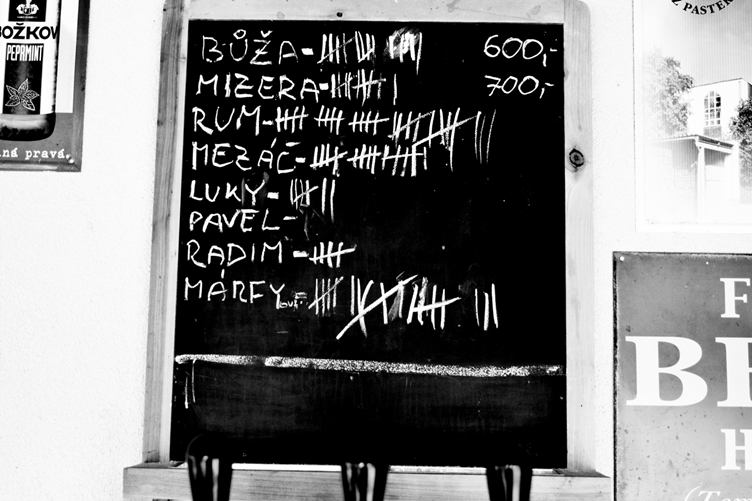 BOŽKOV
PEPRMINT
ná pravá.
Z PASTER
BŮŽA - 600,-
MIZERA - 700,-
RUM -
MEZÁČ -
LUKY -
PAVEL -
RADIM -
MÁRFY
F
BE
H